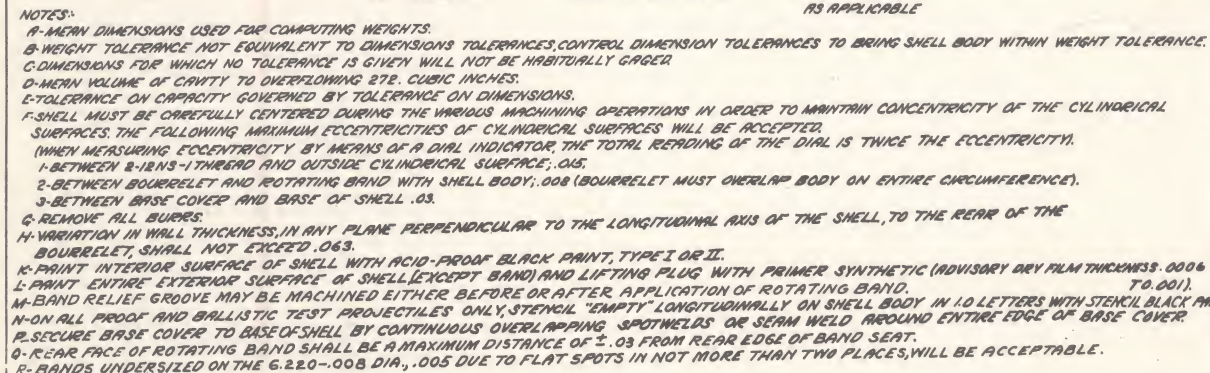 AS APPLICABLE
NOTES:-
A-MEAN DIMENSIONS USED FOR COMPUTING WEIGHTS.
B-WEIGHT TOLERANCE NOT EQUIVALENT TO DIMENSIONS TOLERANCES, CONTROL DIMENSION TOLERANCES TO BRING SHELL BODY WITHIN WEIGHT TOLERANCE.
C-DIMENSIONS FOR WHICH NO TOLERANCE IS GIVEN WILL NOT BE HABITUALLY GAGED
D-MEAN VOLUME OF CAVITY TO OVERFLOWING 272. CUBIC INCHES.
E-TOLERANCE ON CAPACITY GOVERNED BY TOLERANCE ON DIMENSIONS.
F-SHELL MUST BE CAREFULLY CENTERED DURING THE VARIOUS MACHINING OPERATIONS IN ORDER TO MAINTAIN CONCENTRICITY OF THE CYLINDRICAL
SURFACES. THE FOLLOWING MAXIMUM ECCENTRICITIES OF CYLINDRICAL SURFACES WILL BE ACCEPTED.
(WHEN MEASURING ECCENTRICITY BY MEANS OF A DIAL INDICATOR, THE TOTAL READING OF THE DIAL IS TWICE THE ECCENTRICITY).
1-BETWEEN 2-12NS-1 THREAD AND OUTSIDE CYLINDRICAL SURFACE;.015.
2-BETWEEN BOURRELET AND ROTATING BAND WITH SHELL BODY;.008 (BOURRELET MUST OVERLAP BODY ON ENTIRE CIRCUMFERENCE).
3-BETWEEN BASE COVER AND BASE OF SHELL .03.
G-REMOVE ALL BURRS.
H-VARIATION IN WALL THICKNESS, IN ANY PLANE PERPENDICULAR TO THE LONGITUDINAL AXIS OF THE SHELL, TO THE REAR OF THE
BOURRELET, SHALL NOT EXCEED .063.
K-PAINT INTERIOR SURFACE OF SHELL WITH ACID-PROOF BLACK PAINT, TYPE I OR II.
L-PAINT ENTIRE EXTERIOR SURFACE OF SHELL (EXCEPT BAND) AND LIFTING PLUG WITH PRIMER SYNTHETIC (ADVISORY DRY FILM THICKNESS .0006
TO .001).
M-BAND RELIEF GROOVE MAY BE MACHINED EITHER BEFORE OR AFTER APPLICATION OF ROTATING BAND.
N-ON ALL PROOF AND BALLISTIC TEST PROJECTILES ONLY, STENCIL "EMPTY" LONGITUDINALLY ON SHELL BODY IN 1.0 LETTERS WITH STENCIL BLACK
P-SECURE BASE COVER TO BASE OF SHELL BY CONTINUOUS OVERLAPPING SPOTWELDS OR SEAM WELD AROUND ENTIRE EDGE OF BASE COVER.
Q-REAR FACE OF ROTATING BAND SHALL BE A MAXIMUM DISTANCE OF ±.03 FROM REAR EDGE OF BAND SEAT.
R-BANDS UNDERSIZED ON THE 6.220-.008 DIA., .005 DUE TO FLAT SPOTS IN NOT MORE THAN TWO PLACES, WILL BE ACCEPTABLE.